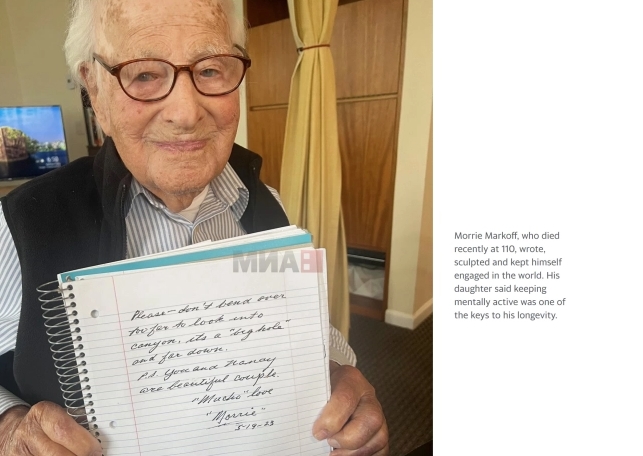 Please - don't bend over
too far to look into
canyon, its a "big hole"
and far down.
P.S. You and Nancy
are beautiful couple.
"Mucho" love
"Morrie"
5-19-23
Morrie Markoff, who died
recently at 110, wrote,
sculpted and kept himself
engaged in the world. His
daughter said keeping
mentally active was one of
the keys to his longevity.